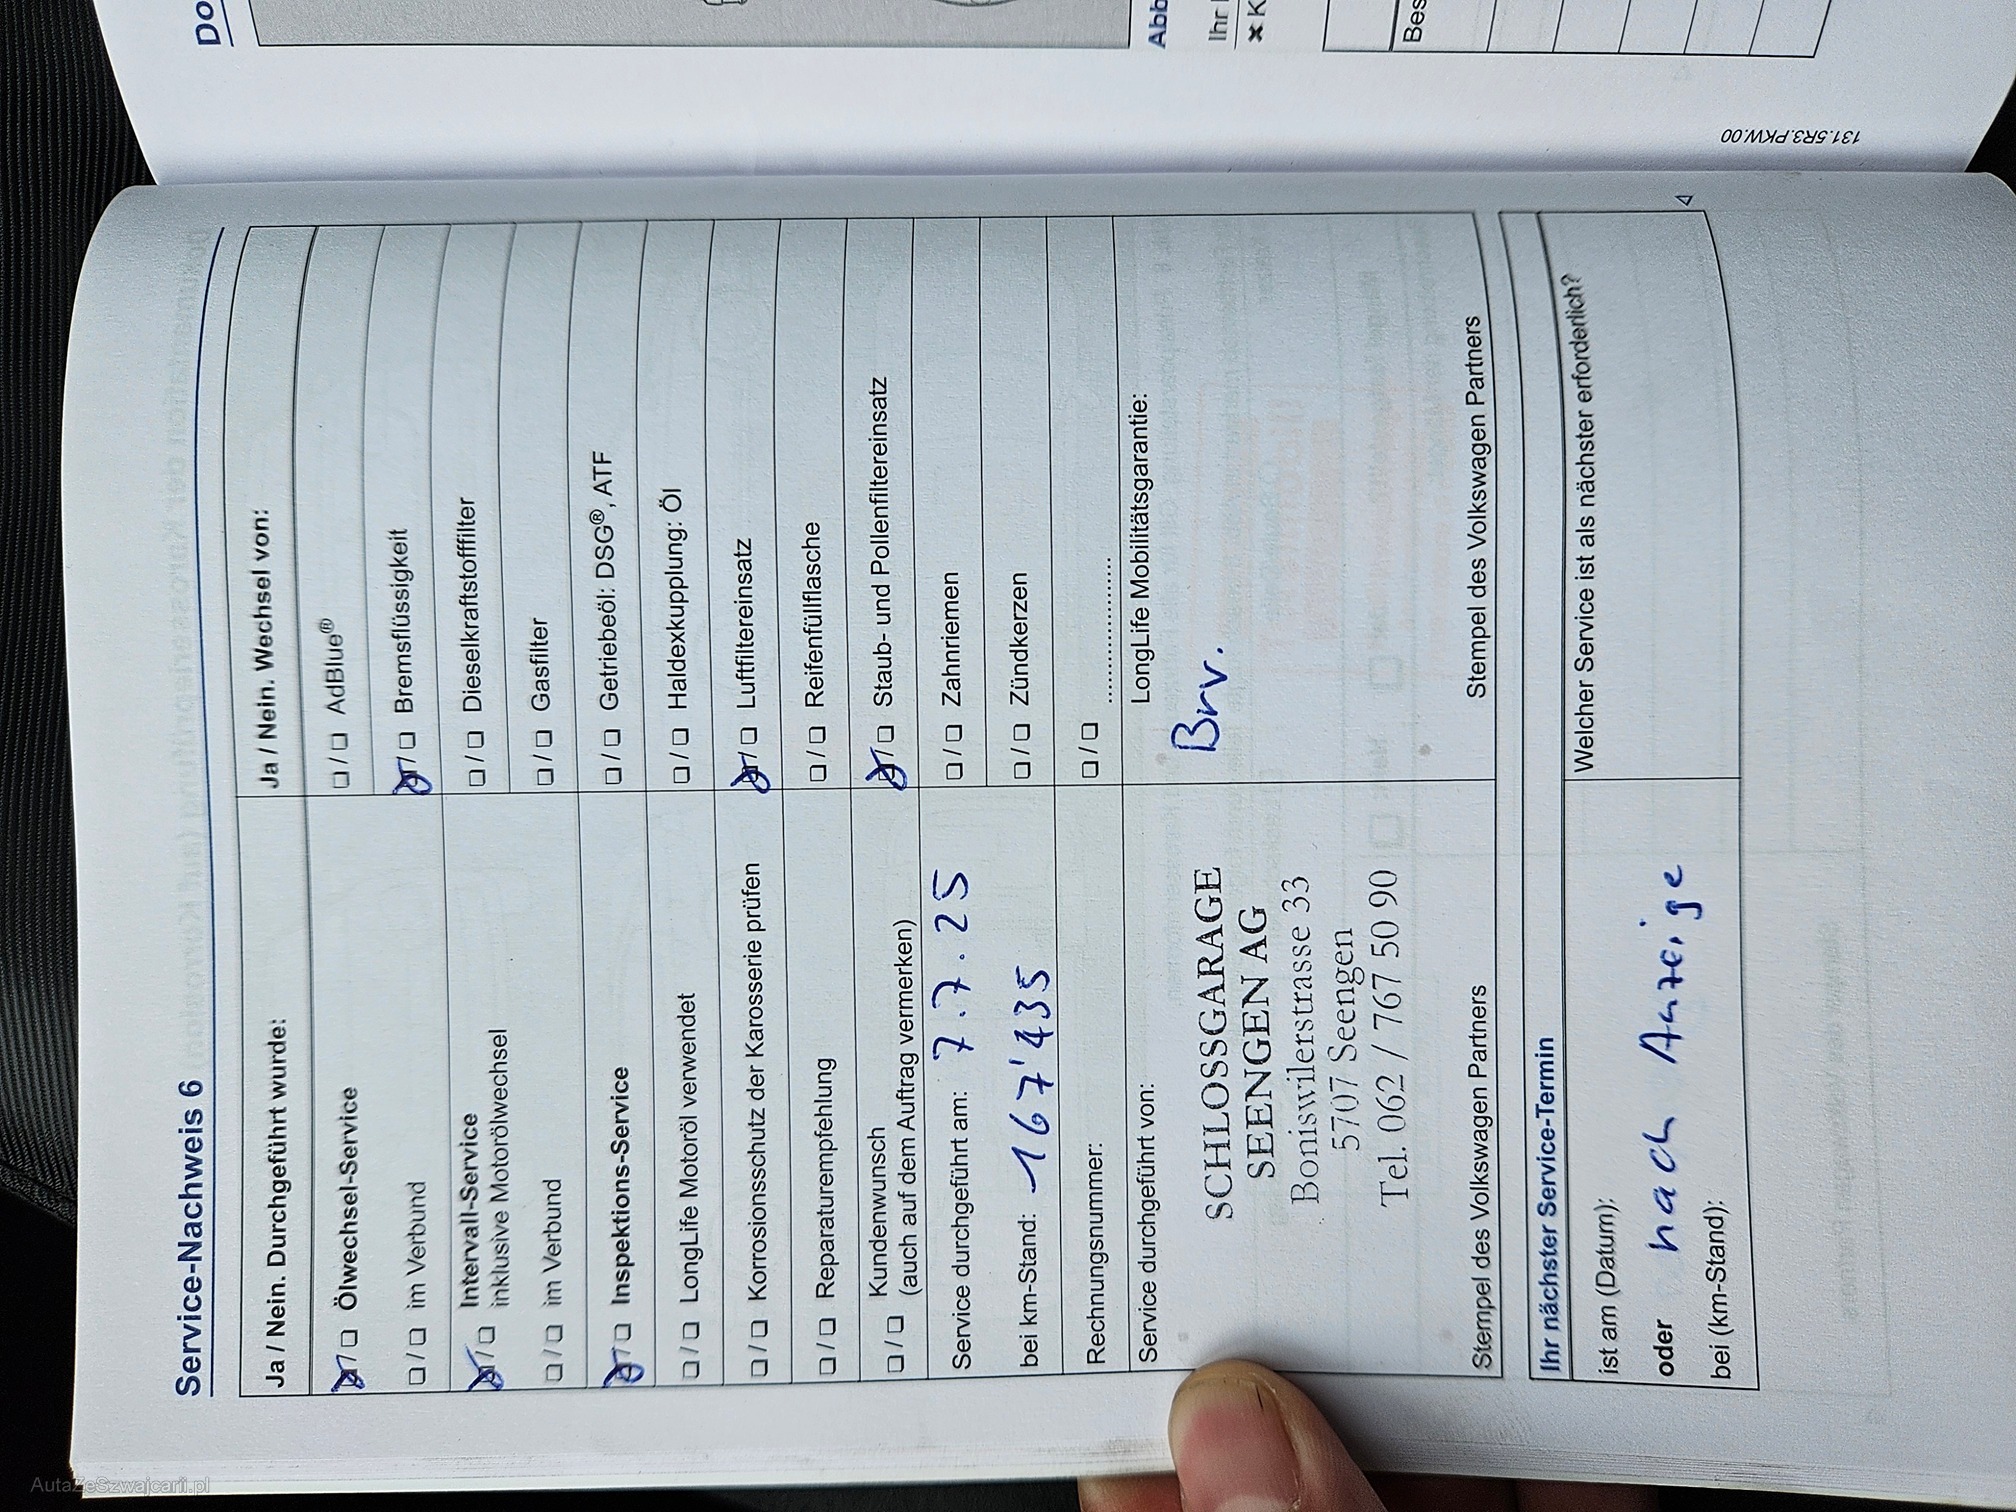 Service-Nachweis 6
Ja / Nein. Durchgeführt wurde:
Ölwechsel-Service
im Verbund
Intervall-Service
inklusive Motorölwechsel
im Verbund
Inspektions-Service
LongLife Motoröl verwendet
Korrosionsschutz der Karosserie prüfen
Reparaturempfehlung
Kundenwunsch
(auch auf dem Auftrag vermerken)
Service durchgeführt am: 7.7.25
bei km-Stand: 167'435
Rechnungsnummer:
Service durchgeführt von:
SCHLOSSGARAGE
SEENGEN AG
Boniswilerstrasse 33
5707 Seengen
Tel. 062 / 767 50 90
Stempel des Volkswagen Partners
Ja / Nein. Wechsel von:
AdBlue®
Bremsflüssigkeit
Dieselkraftstofffilter
Gasfilter
Getriebeöl: DSG®, ATF
Haldexkupplung: Öl
Luftfiltereinsatz
Reifenfüllflasche
Staub- und Pollenfiltereinsatz
Zahnriemen
Zündkerzen
....................
LongLife Mobilitätsgarantie:
Brv.
Stempel des Volkswagen Partners
Ihr nächster Service-Termin
ist am (Datum):
oder nach Anzeige
bei (km-Stand):
Welcher Service ist als nächster erforderlich?
131.5R3.PKW.00
Do
Abb
Ihr
K
Bes
AutaZeSzwajcarii.pl